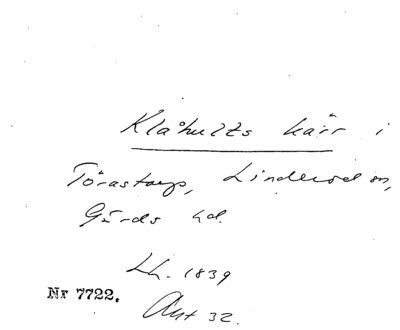 Klåhults kärr i
Törastorp, Linderöd sn,
Gärds hd.
Lh. 1839
Nr 7722.
Akt 32.